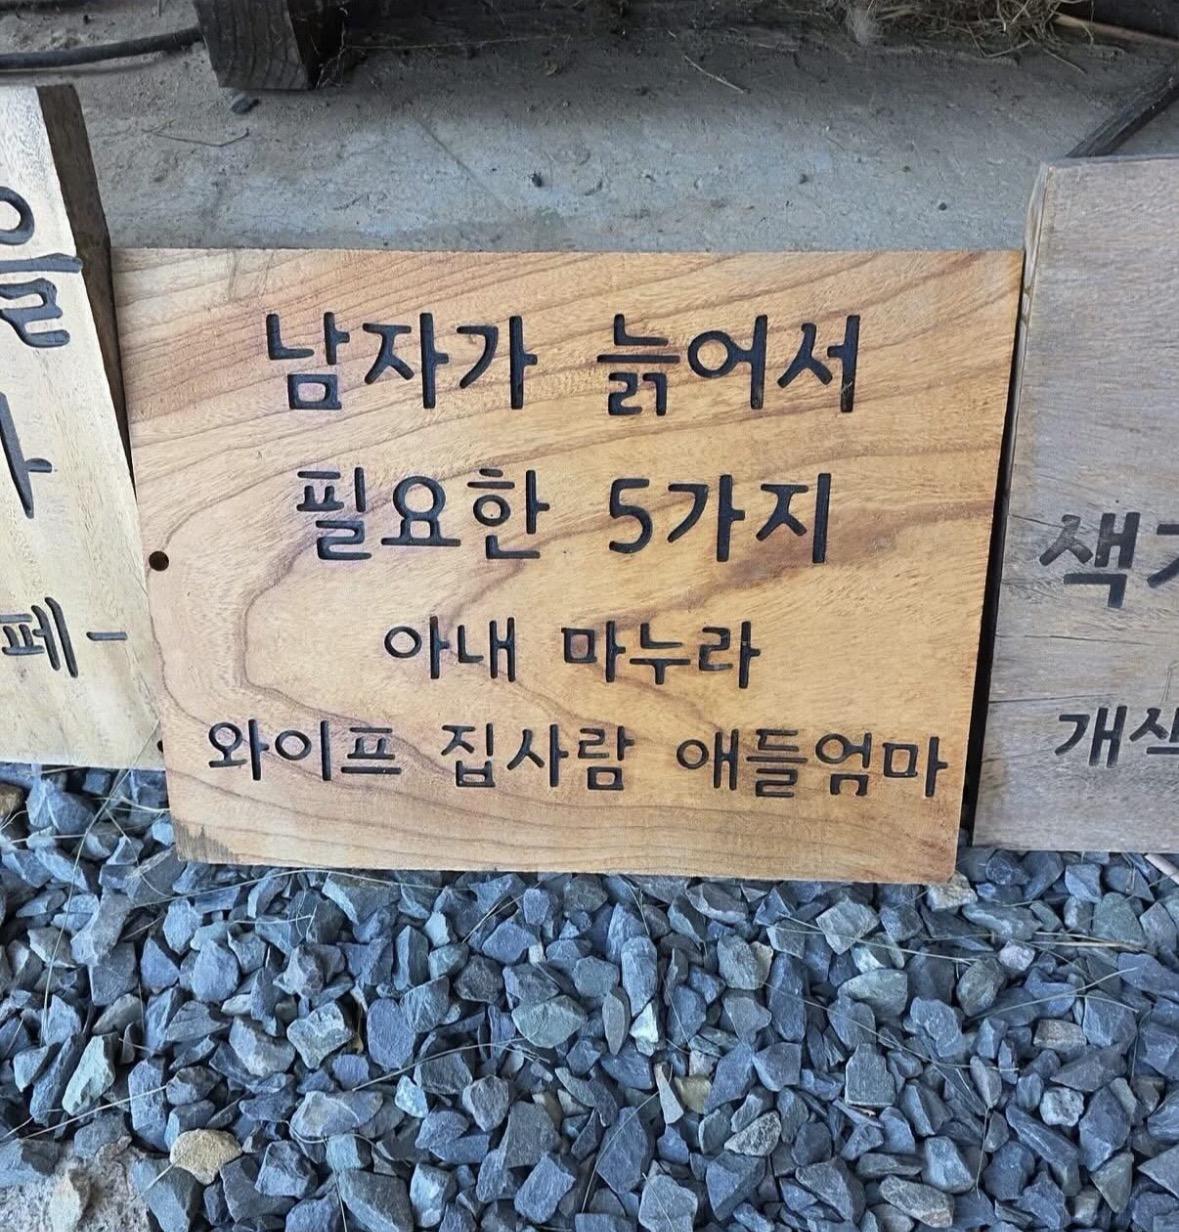 남자가 늙어서
필요한 5가지
아내 마누라
와이프 집사람 얘들엄마
을
페-